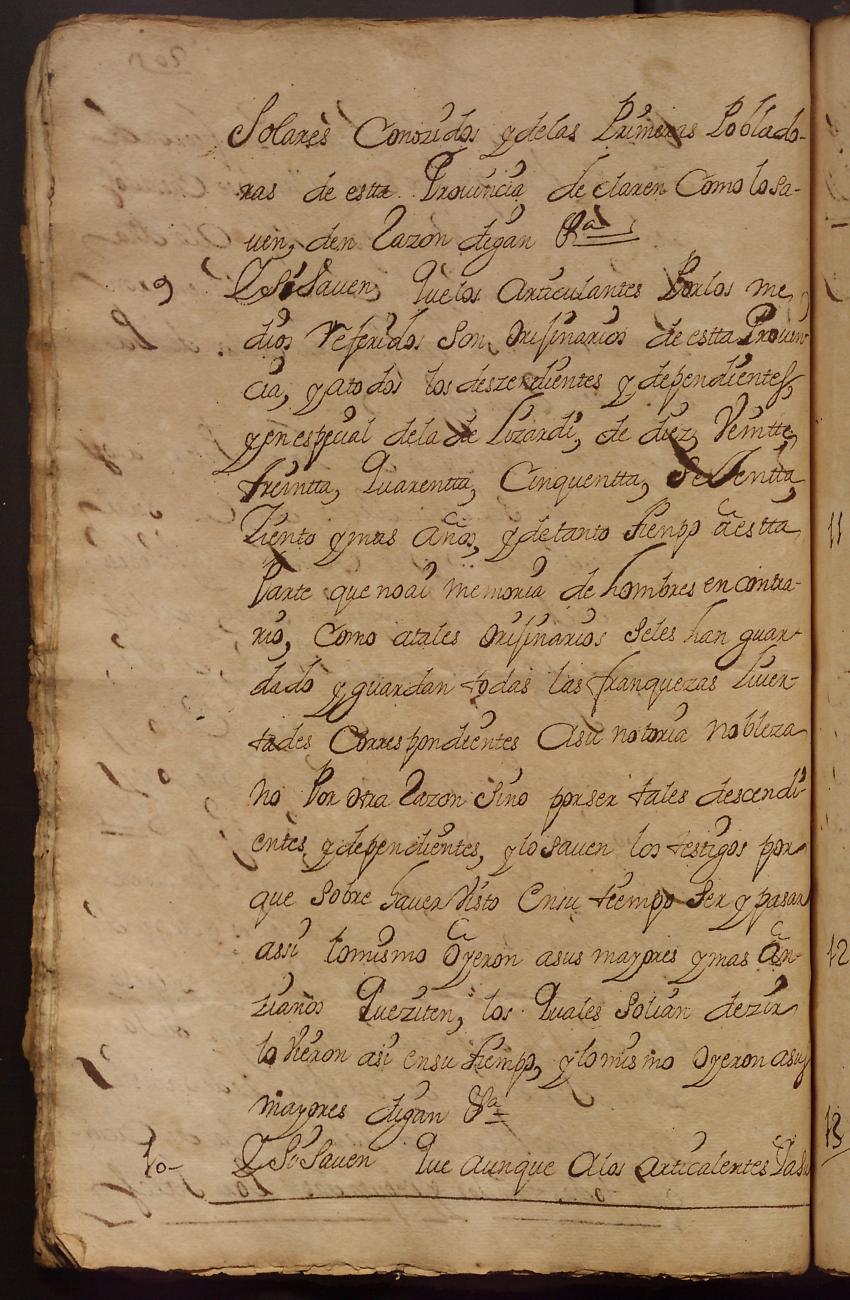 Solares Conozidos y delas Primeras Poblado-
ras de estta Provincia de claren Como lo sa-
ven, den Razon digan &a
9 Y Si Saven, Que los Articulantes Por los me
dios referidos Son Orijinarios de estta Provin
cia, y a todos los deszendientes y dependientes,
y en especial de la de Lizardi, de diez, Veintte,
treintta, Quarentta, Cinquentta, Settentta,
Ziento y mas años, y de tanto tiempo a estta
Parte que no ai memoria de hombres en contra-
rio, Como a tales Orijinarios se les han guar-
dado y guardan todas las franquezas liver-
tades Correspondientes a su notoria nobleza
no Por otra Razon Sino por ser tales descendi-
entes y dependientes, y lo Saven los testigos por
que sobre haver Visto en su tiempo Ser y pasar
assi lo mismo Oyeron a sus mayores y mas An-
zianos Que ziten, los Quales Solian dezir
lo Vieron asi en su tiempo, y lo mismo Oyeron a sus
mayores digan &a
10- Y Si Saven Que aunque A los articalentes
11
12
13